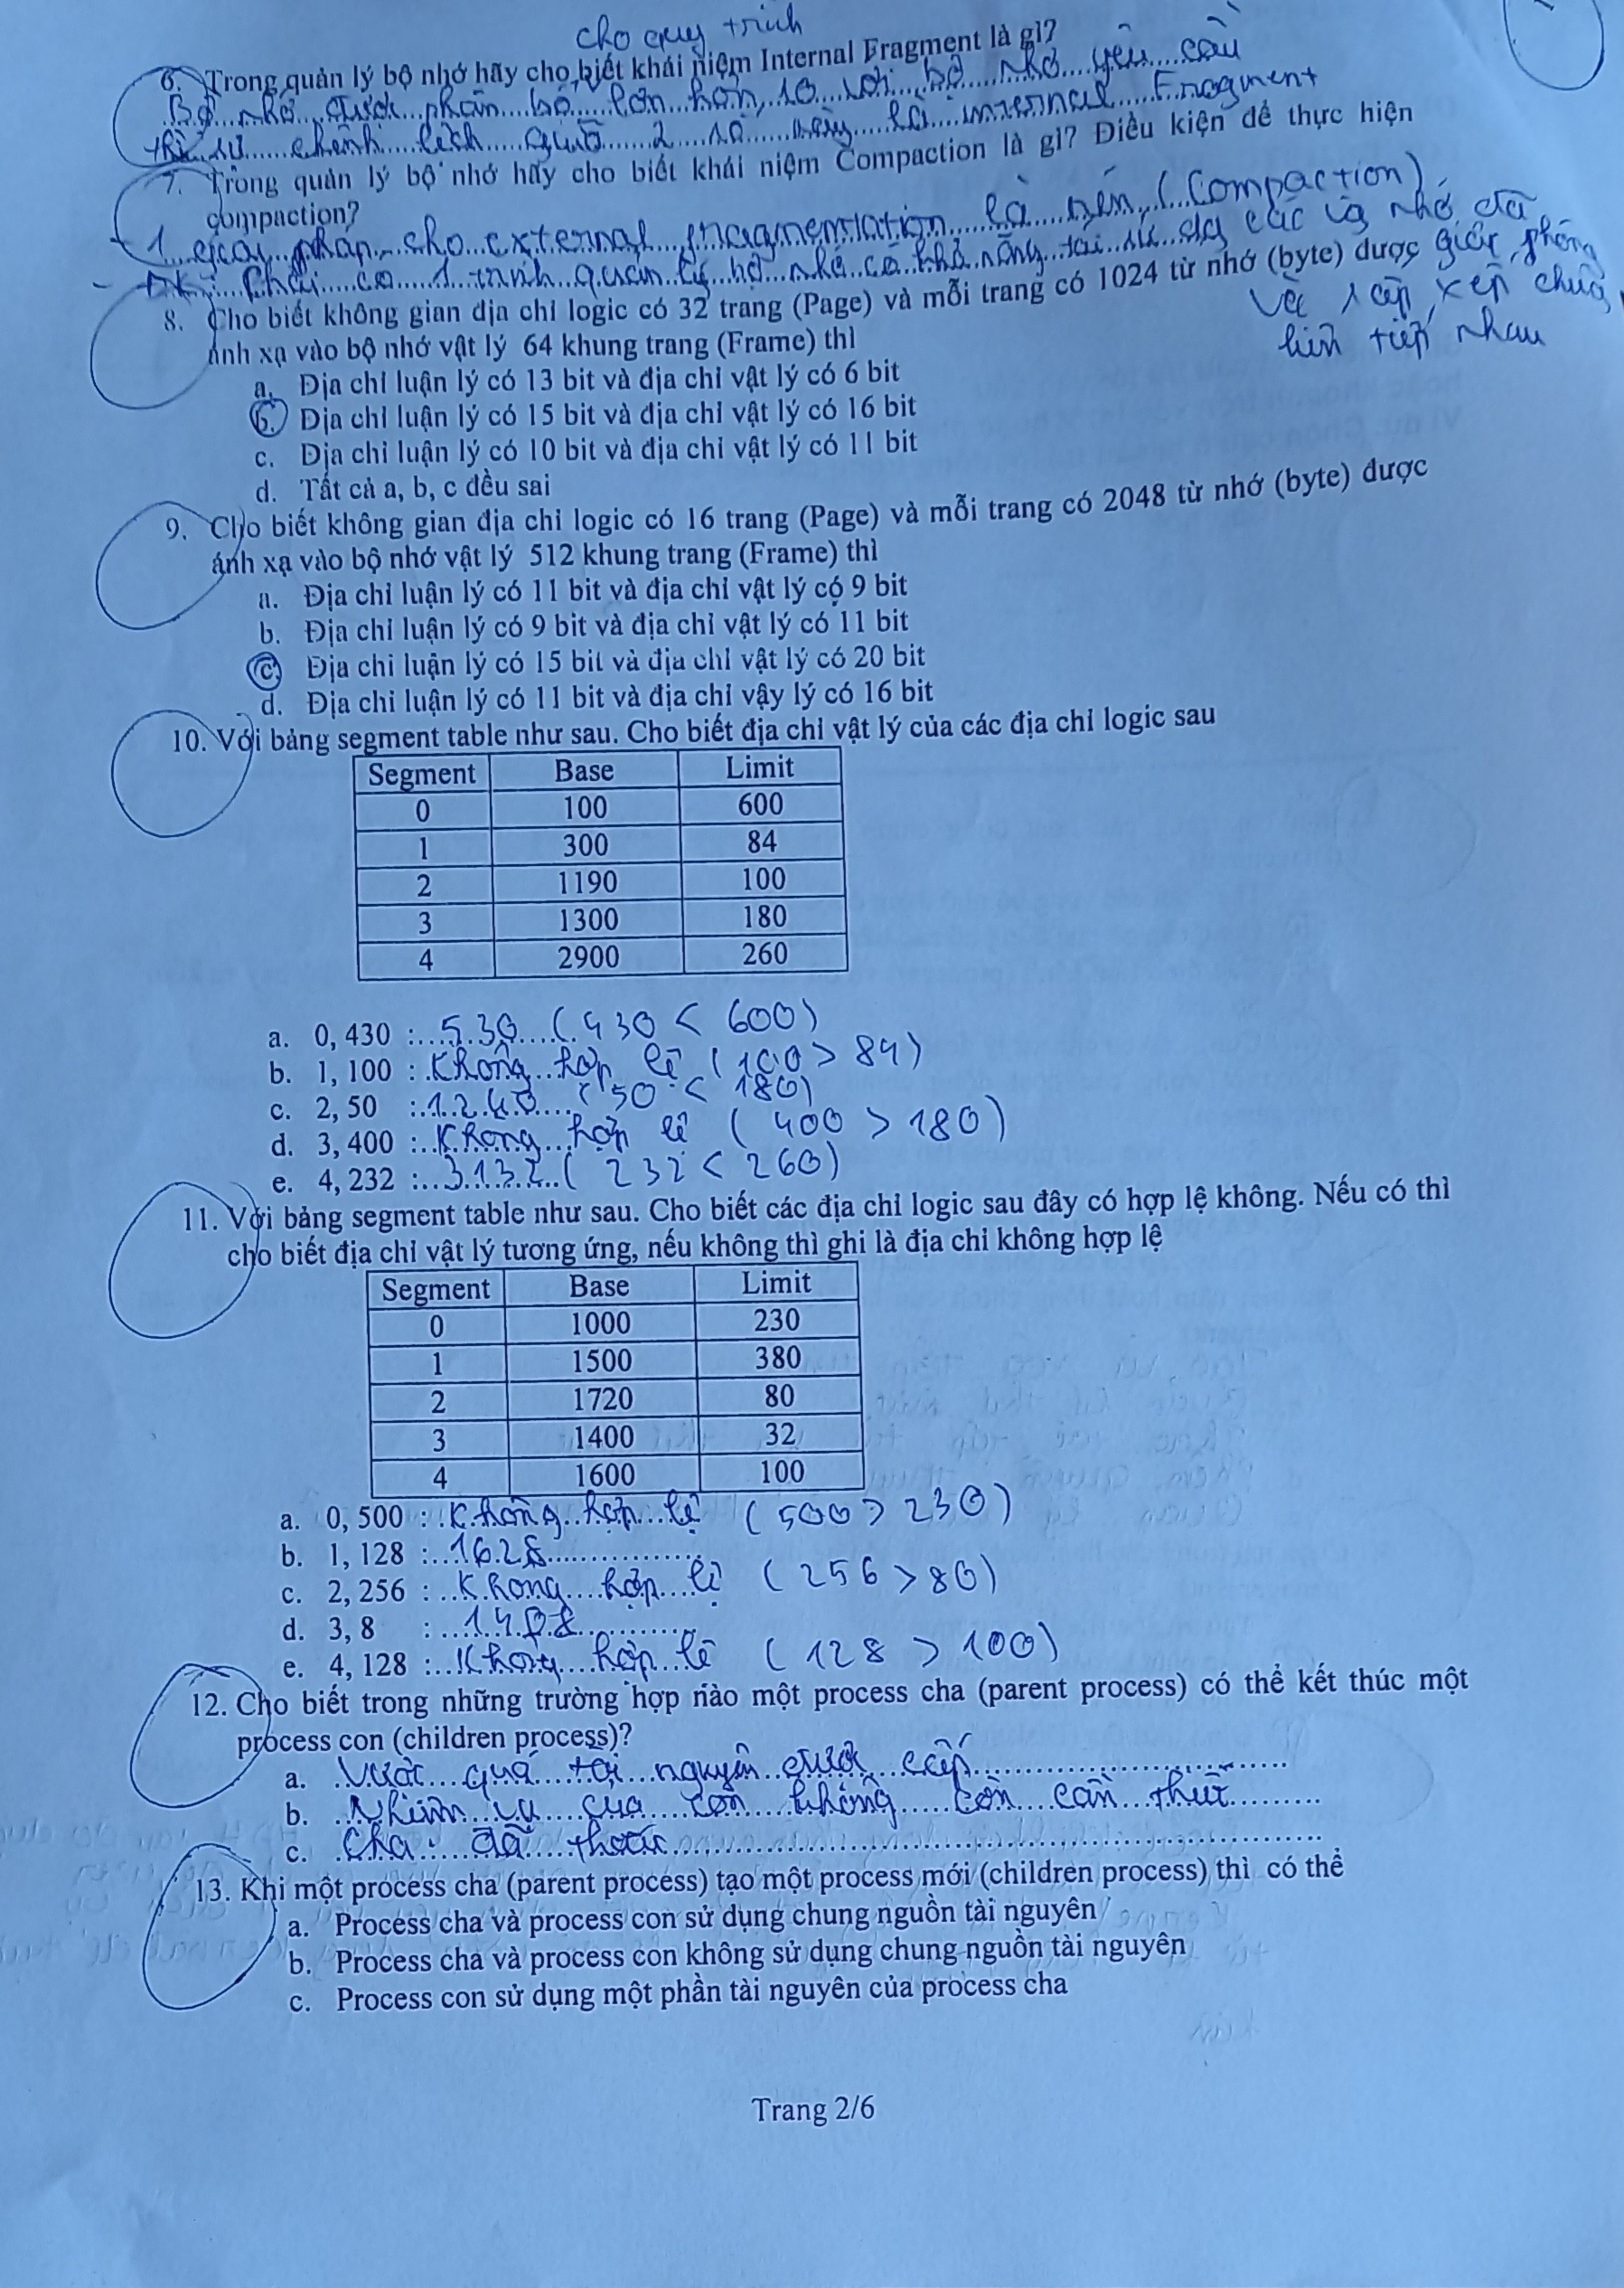 cho quy trình
6. Trong quản lý bộ nhớ hãy cho biết khái niệm Internal Fragment là gì?
Bộ nhớ được phân bổ lớn hơn so với bộ nhớ yêu cầu
thì sự chênh lệch giữa 2 số này là internal Fragment
7. Trong quản lý bộ nhớ hãy cho biết khái niệm Compaction là gì? Điều kiện để thực hiện
compaction?
1 giải pháp cho external fragmentation là nén (Compaction)
- ĐK: Phải có 1 trình quản lý bộ nhớ có khả năng tái sử dg các vg nhớ đã giải phóng
và sắp xếp chúng
liên tiếp nhau
8. Cho biết không gian địa chỉ logic có 32 trang (Page) và mỗi trang có 1024 từ nhớ (byte) được
ánh xạ vào bộ nhớ vật lý 64 khung trang (Frame) thì
a. Địa chỉ luận lý có 13 bit và địa chỉ vật lý có 6 bit
b. Địa chỉ luận lý có 15 bit và địa chỉ vật lý có 16 bit
c. Địa chỉ luận lý có 10 bit và địa chỉ vật lý có 11 bit
d. Tất cả a, b, c đều sai
9. Cho biết không gian địa chỉ logic có 16 trang (Page) và mỗi trang có 2048 từ nhớ (byte) được
ánh xạ vào bộ nhớ vật lý 512 khung trang (Frame) thì
a. Địa chỉ luận lý có 11 bit và địa chỉ vật lý có 9 bit
b. Địa chỉ luận lý có 9 bit và địa chỉ vật lý có 11 bit
c. Địa chỉ luận lý có 15 bit và địa chỉ vật lý có 20 bit
d. Địa chỉ luận lý có 11 bit và địa chỉ vậy lý có 16 bit
10. Với bảng segment table như sau. Cho biết địa chỉ vật lý của các địa chỉ logic sau
Segment Base Limit
0 100 600
1 300 84
2 1190 100
3 1300 180
4 2900 260
a. 0, 430 : 530 (430 < 600)
b. 1, 100 : Không hợp lệ (100 > 84)
c. 2, 50 : 1240 (50 < 180)
d. 3, 400 : Không hợp lệ (400 > 180)
e. 4, 232 : 3132 (232 < 260)
11. Với bảng segment table như sau. Cho biết các địa chỉ logic sau đây có hợp lệ không. Nếu có thì
cho biết địa chỉ vật lý tương ứng, nếu không thì ghi là địa chỉ không hợp lệ
Segment Base Limit
0 1000 230
1 1500 380
2 1720 80
3 1400 32
4 1600 100
a. 0, 500 : Không hợp lệ (500 > 230)
b. 1, 128 : 1628
c. 2, 256 : Không hợp lệ (256 > 80)
d. 3, 8 : 1408
e. 4, 128 : Không hợp lệ (128 > 100)
12. Cho biết trong những trường hợp nào một process cha (parent process) có thể kết thúc một
process con (children process)?
a. Vượt quá tài nguyên được cấp
b. Nhiệm vụ của con không còn cần thiết
c. Cha đã thoát
13. Khi một process cha (parent process) tạo một process mới (children process) thì có thể
a. Process cha và process con sử dụng chung nguồn tài nguyên
b. Process cha và process con không sử dụng chung nguồn tài nguyên
c. Process con sử dụng một phần tài nguyên của process cha
Trang 2/6